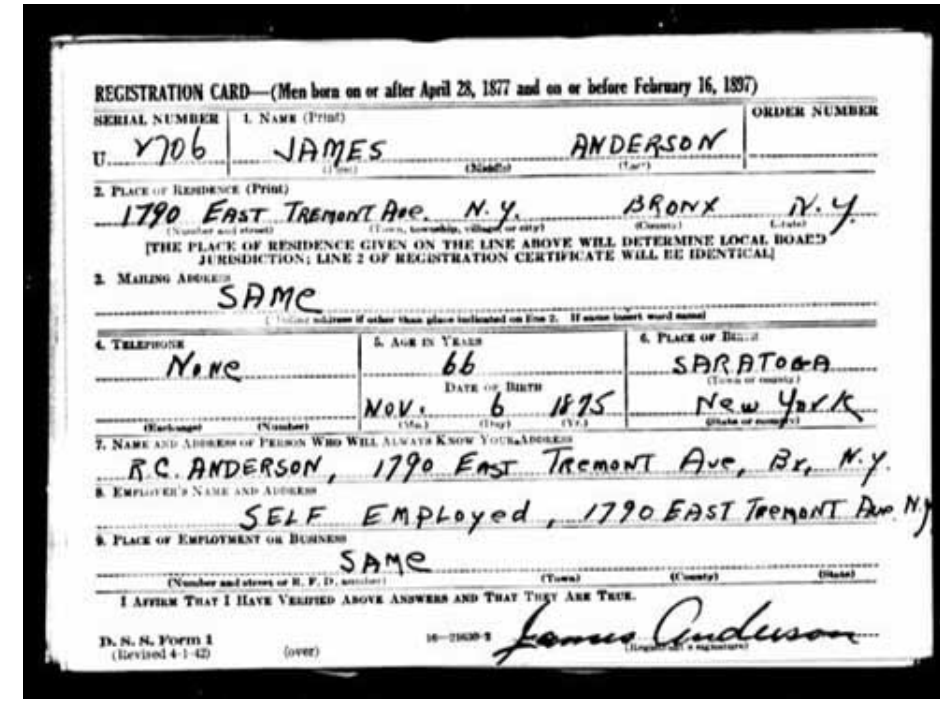 REGISTRATION CARD—(Men born on or after April 28, 1877 and on or before February 16, 1897)
SERIAL NUMBER 1. NAME (Print) ORDER NUMBER
U 1706 JAMES ANDERSON
(First) (Middle) (Last)
2. PLACE OF RESIDENCE (Print)
1790 EAST TREMONT AVE. N.Y. BRONX N.Y.
(Number and street) (Town, township, village, or city) (County) (State)
[THE PLACE OF RESIDENCE GIVEN ON THE LINE ABOVE WILL DETERMINE LOCAL BOARD
JURISDICTION; LINE 2 OF REGISTRATION CERTIFICATE WILL BE IDENTICAL]
3. MAILING ADDRESS
SAMe
address if other than place indicated on line 2. If same insert word same]
4. TELEPHONE 5. AGE IN YEARS 6. PLACE OF BIRTH
NoNe 66 SARATOGA
(Town or county)
DATE OF BIRTH
NOV. 6 1875 New York
(Exchange) (Number) (Mo.) (Day) (Yr.) (State or country)
7. NAME AND ADDRESS OF PERSON WHO WILL ALWAYS KNOW YOUR ADDRESS
R.C. ANDERSON, 1790 EAST TREMONT Ave, Bx, N.Y.
8. EMPLOYER'S NAME AND ADDRESS
SELF EMPLoyed, 1790 EAST TREMONT Ave. N.Y
9. PLACE OF EMPLOYMENT OR BUSINESS
SAMe
(Number and street or R. F. D. number) (Town) (County) (State)
I AFFIRM THAT I HAVE VERIFIED ABOVE ANSWERS AND THAT THEY ARE TRUE.
D. S. S. Form 1 James Anderson
(Revised 4-1-42) (over) 16—21630-2 (Registrant's signature)